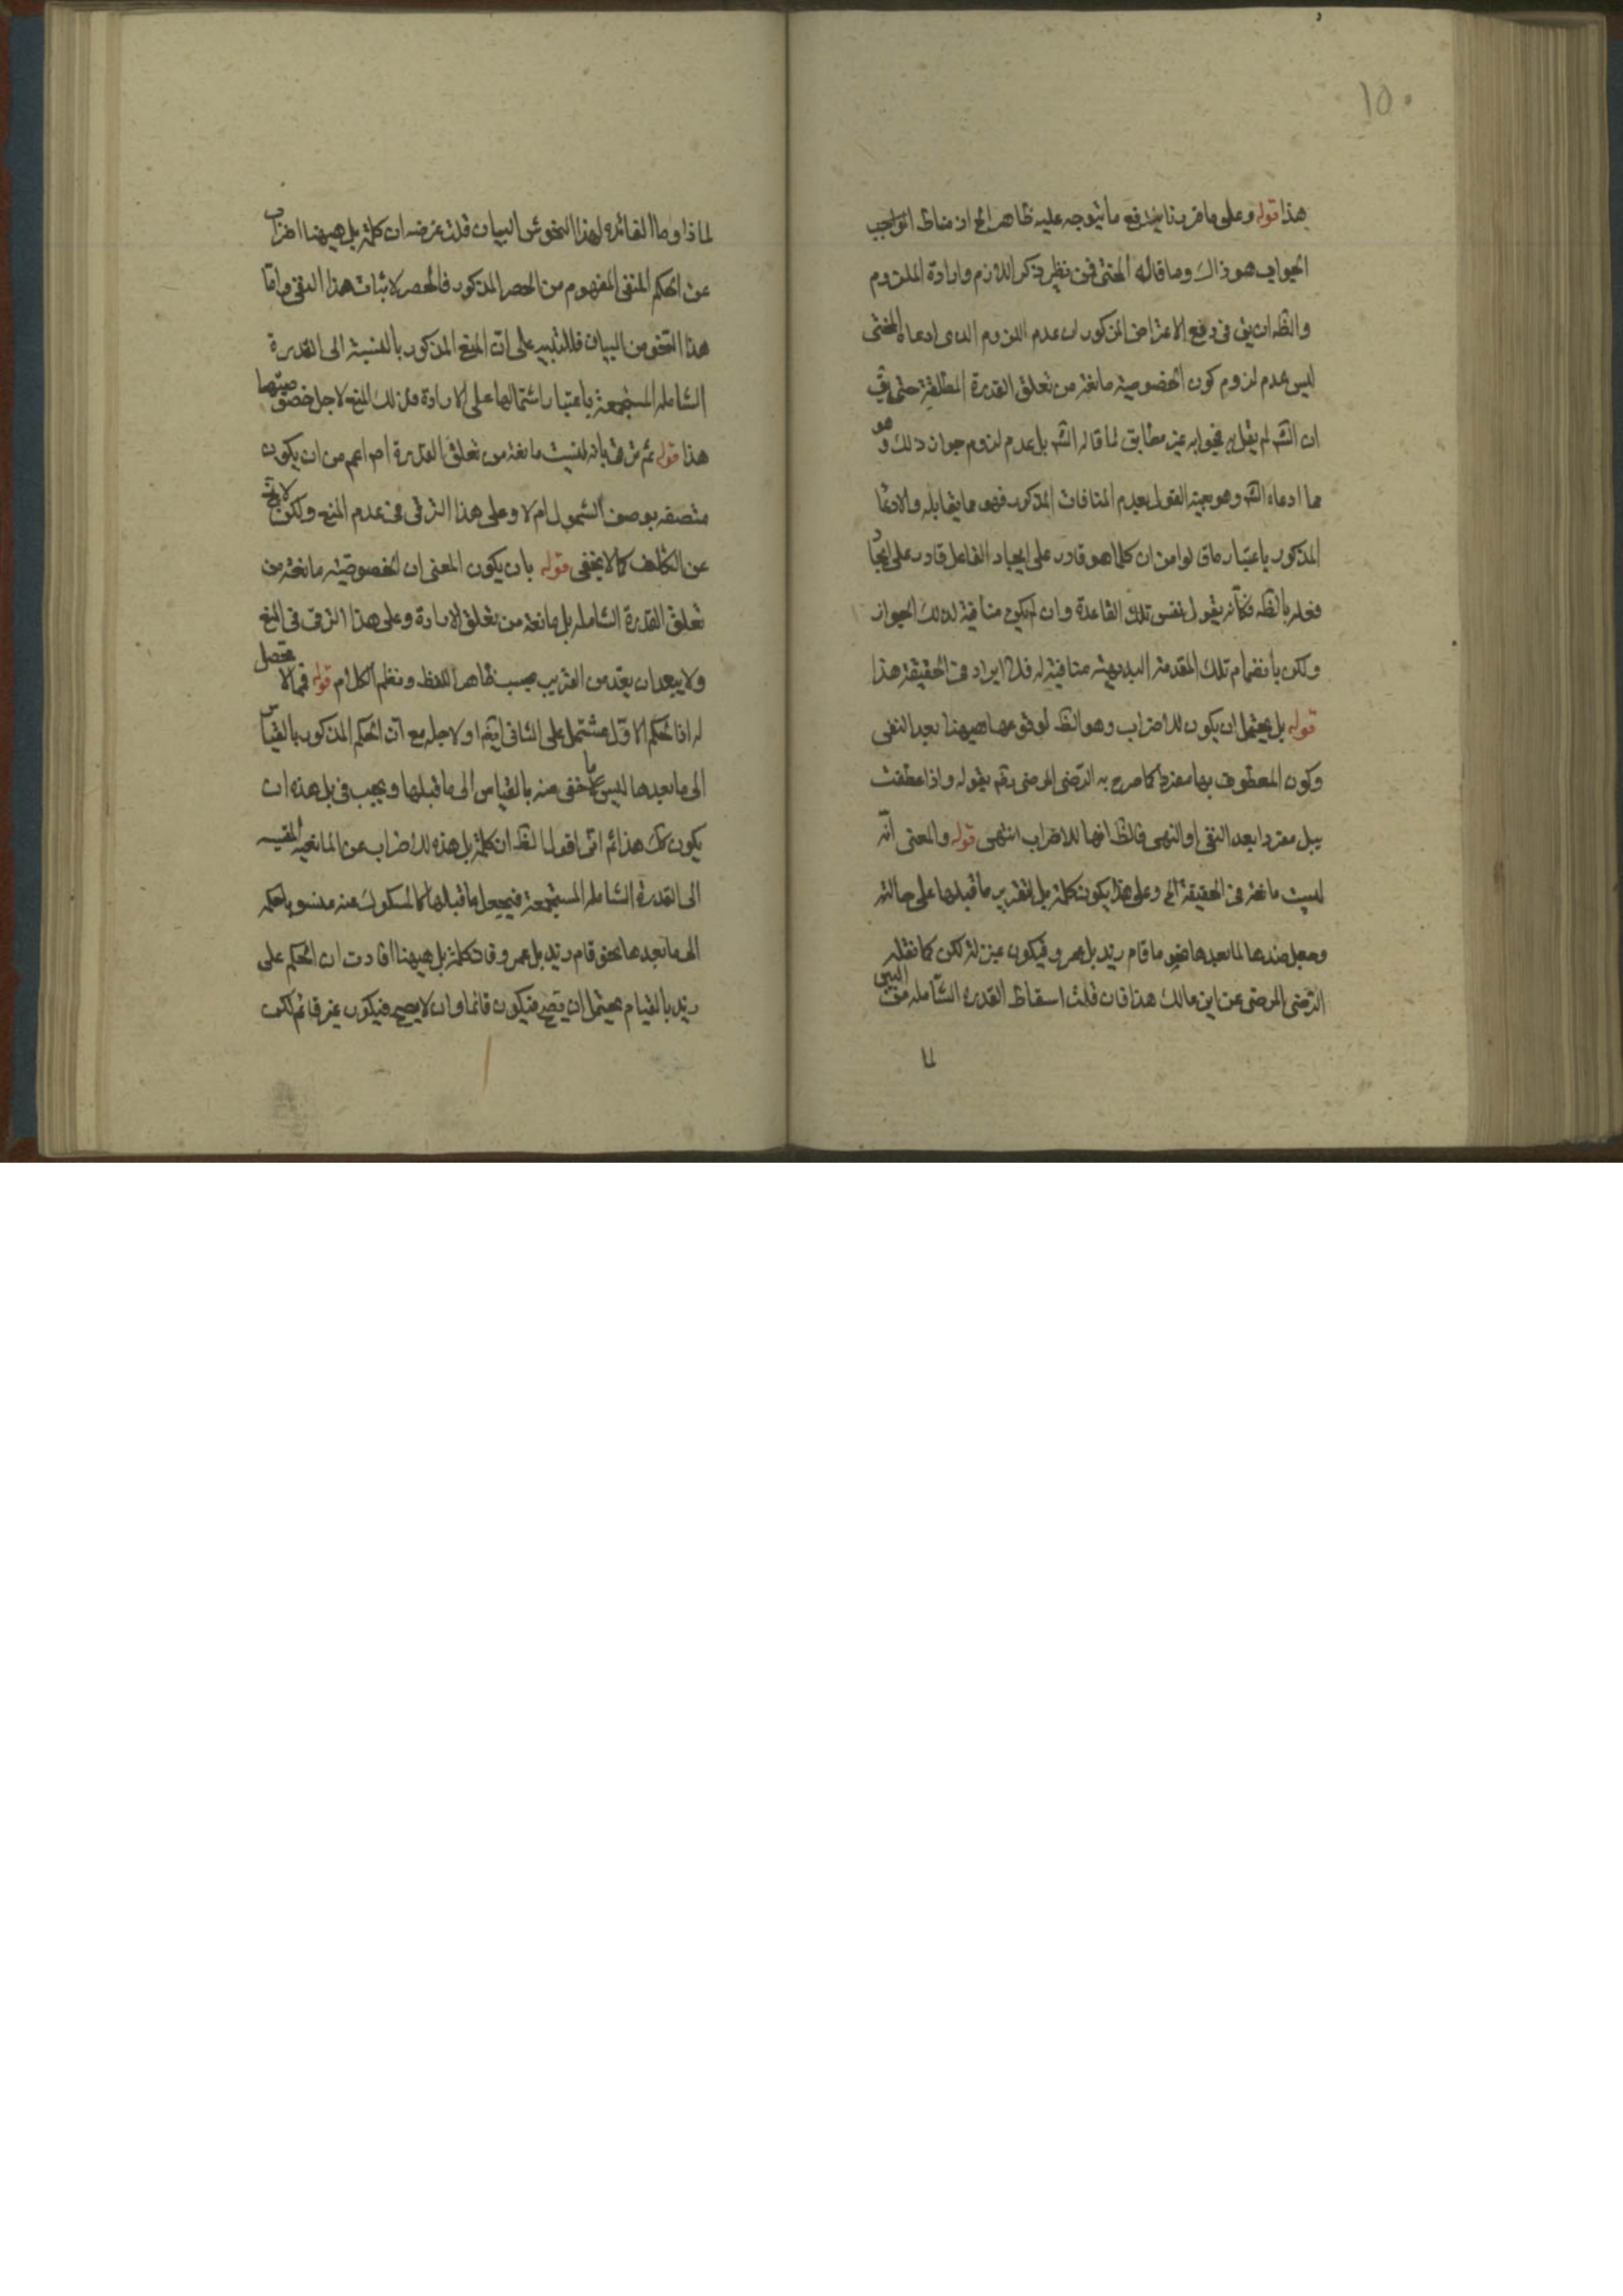 ١٥٠
هذا قوله وعلى ما قررنا يندفع ما يتوجه عليه ظاهرا الخ اذ مناط الواجب
الجواب هو ذاك وما قاله المحشى فمن نظير ذكر اللازم وارادة الملزوم
والظ ان يق في دفع الاعتراض المذكور ان عدم اللزوم الذى ادعاه المحشى
ليس عدم لزوم كون الخصوصية مانعة من تعلق القدرة المطلقة حتى يق
ان الش لم يقل به فجوابه غير مطابق لما قاله الش بل عدم لزوم جواز ذلك وهو
مما ادعاه الش وهو بعينه القول بعدم المنافات المذكور فهو ما يقابله والادعا
المذكور باعتبار ما في لوا من ان كلما هو قادر على ايجاد الفاعل قادر على ايجاد
فعله بالظ فكأنه يقول نفس تلك القاعدة وان لم يكن منافية لذلك الجواز
ولكن بانضمام تلك المقدمة البديهية منافية له فلا ايراد في الحقيقة هذا
قوله بل يحتمل ان يكون للاضراب وهو الظ لوقوعها هيهنا بعد النفى
وكون المعطوف بها مفردا كما صرح به الرضى المرضى رقم بقوله واذا عطفت
ببل مفردا بعد النفى او النهى فالظ انها للاضراب انتهى قوله والمعنى انه
ليست مانعة في الحقيقة الخ وعلى هذا يكون كلمة بل لتقرير ما قبلها على حالته
وجعل ضدها لما بعدها نحو ما قام زيد بل عمرو فيكون بمنزلة لكن كما نقله
الرضى المرضى عن ابن مالك هذا فان قلت اسقاط القدرة الشاملة من البين
لما
لماذا وما الفائدة لهذا النحو من البيان قلت غرضه ان كلمة بل هيهنا اضراب
عن الحكم المنفى المفهوم من الحصر المذكور فالحصر لاثبات هذا النفى واما
هذا النحو من البيان فللتنبيه على ان المنع المذكور بالنسبة الى القدرة
الشاملة المستجمعة باعتبار اشتمالها على الارادة فذلك المنع لاجل خصوصيتها
هذا قوله ثم ترقى بانه ليست مانعة من تعلق القدرة اصلا اعم من ان يكون
متصفه بوصف الشمول ام لا وعلى هذا الترقى في عدم المنع ولكن لا يخ
عن التكلف كما لا يخفى قوله بان يكون المعنى ان الخصوصية مانعة من
تعلق القدرة الشاملة بل مانعة من تعلق الارادة وعلى هذا الترقى في المنع
ولا يبعد ان يعد من القريب بحسب ظاهر اللفظ ونظم الكلام قوله فمما لا محصل
له اذ الحكم الاول مشتمل على الثانى ايضا او لاجله مع ان الحكم المذكور بالقياس
الى ما بعدها ليس ما اخفى منه بالقياس الى ما قبلها ويجب في بل هذه ان
يكون كك هذا ثم انى اقول الظ ان كلمة بل هذه للاضراب عن المانعية المقيسه
الى القدرة الشاملة المستجمعة فيجعل ما قبلها كالمسكوت عنه منسوبا حكمه
الى ما بعدها نحو قام زيد بل عمرو فان كلمة بل هيهنا افادت ان الحكم على
زيد بالقيام يحتمل ان يصح فيكون قائما وان لا يصح فيكون غير قائم لكن